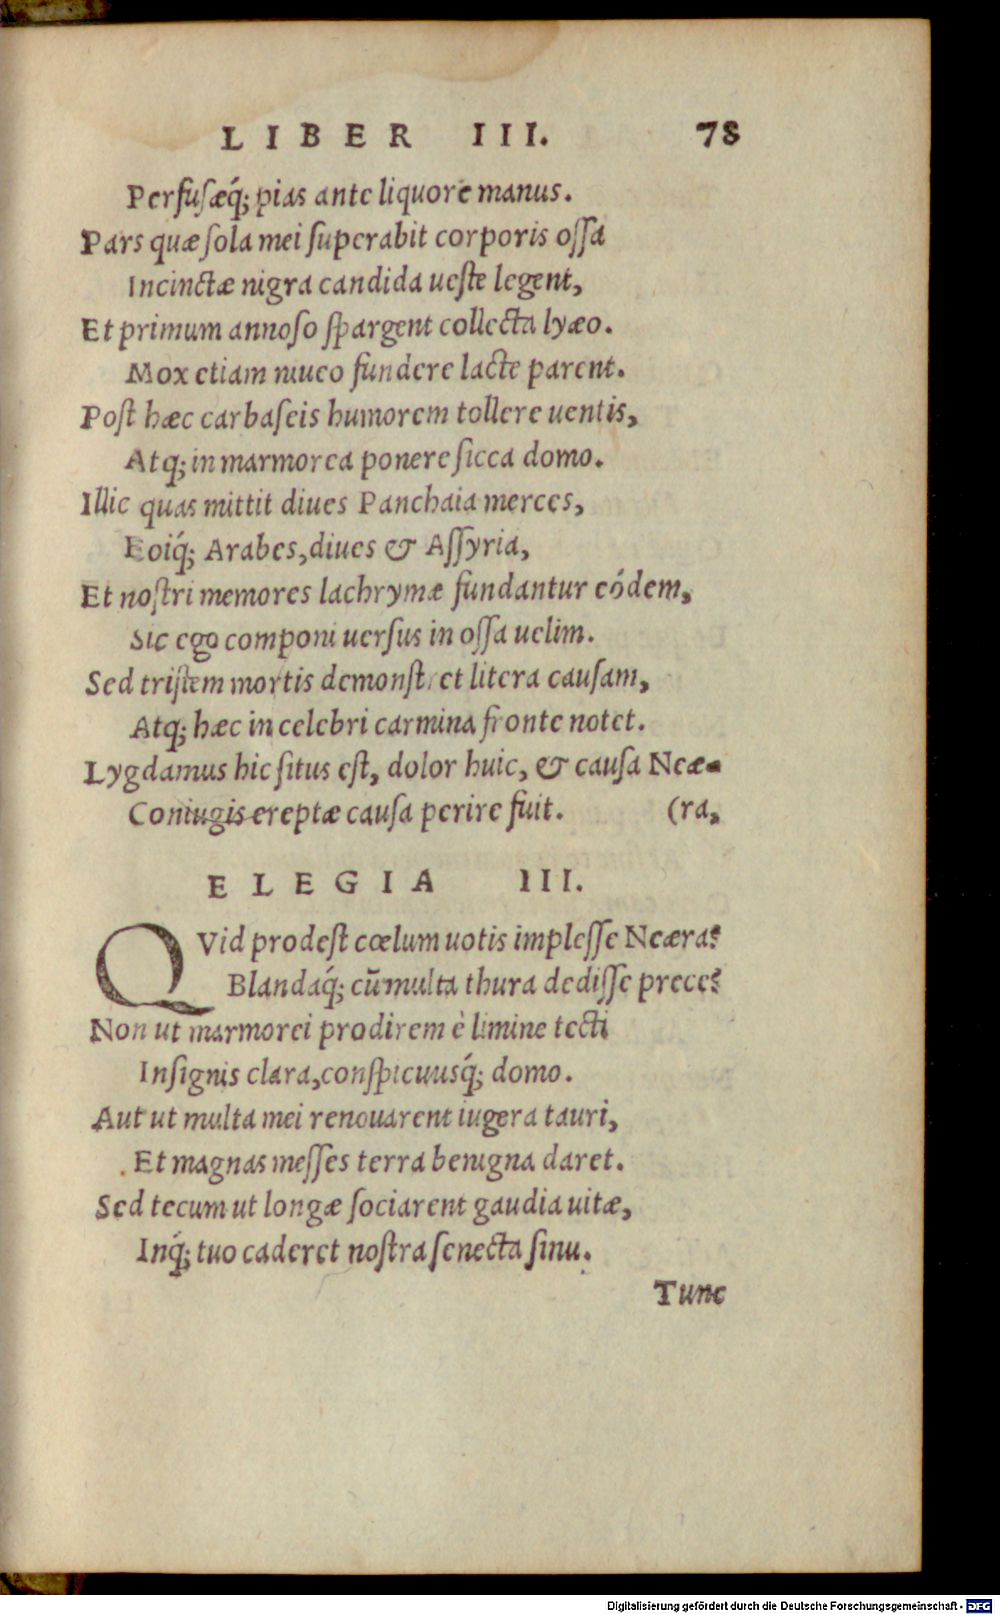 LIBER III. 78
Perfusæq́; pias ante liquore manus.
Pars quæ sola mei superabit corporis ossa
Incinctæ nigra candida ueste legent,
Et primum annoso spargent collecta lyæo.
Mox etiam niueo fundere lacte parent.
Post hæc carbaseis humorem tollere uentis,
Atq; in marmorea ponere sicca domo.
Illic quas mittit diues Panchaia merces,
Eoiq́; Arabes, diues & Assyria,
Et nostri memores lachrymæ fundantur eódem,
Sic ego componi uersus in ossa uelim.
Sed tristem mortis demonstret litera causam,
Atq; hæc in celebri carmina fronte notet.
Lygdamus hic situs est, dolor huic, & causa Neæ-
Coniugis ereptæ causa perire fuit. (ra,
ELEGIA III.
QVid prodest cœlum uotis implesse Neæra?
Blandaq́; cũ multa thura dedisse prece?
Non ut marmorei prodirem è limine tecti
Insignis clara, conspicuusq́; domo.
Aut ut multa mei renouarent iugera tauri,
Et magnas messes terra benigna daret.
Sed tecum ut longæ sociarent gaudia uitæ,
Inq́; tuo caderet nostra senecta sinu.
Tunc
Digitalisierung gefördert durch die Deutsche Forschungsgemeinschaft - DFG